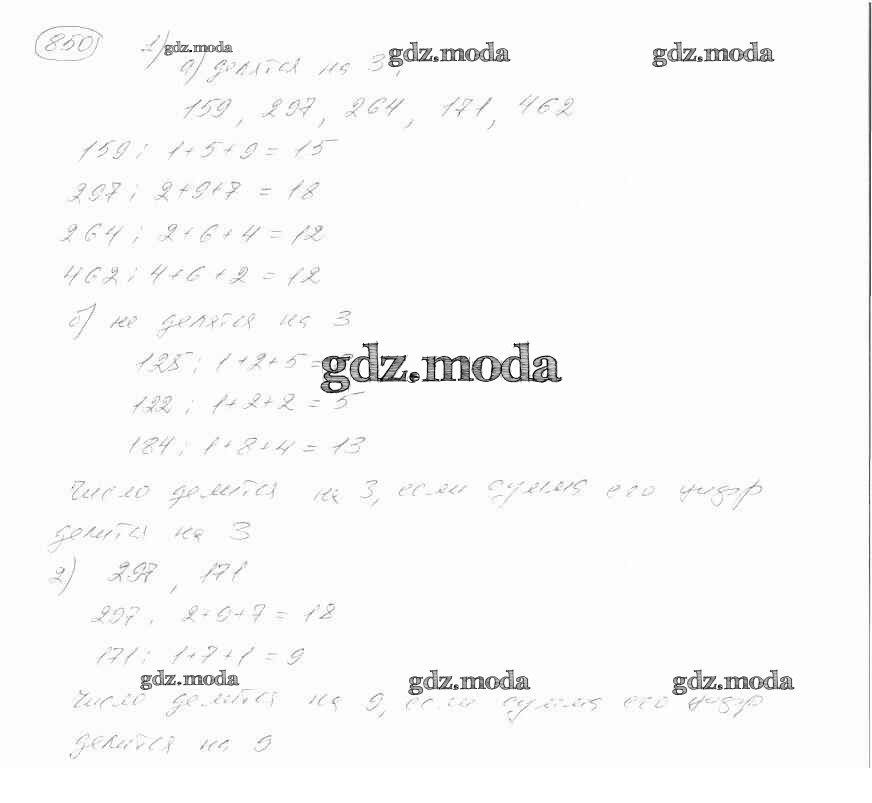 850 1) gdz.moda gdz.moda gdz.moda
а) делятся на 3,
159, 297, 264, 171, 462
159; 1+5+9=15
297; 2+9+7=18
264; 2+6+4=12
462; 4+6+2=12
б) не делятся на 3
125; 1+2+5=
gdz.moda
122; 1+2+2=5
184; 1+8+4=13
Число делится на 3, если сумма его цифр
делится на 3
2) 297, 171
297. 2+9+7=18
171; 1+7+1=9
gdz.moda gdz.moda gdz.moda
Число делится на 9, если сумма его цифр
делится на 9